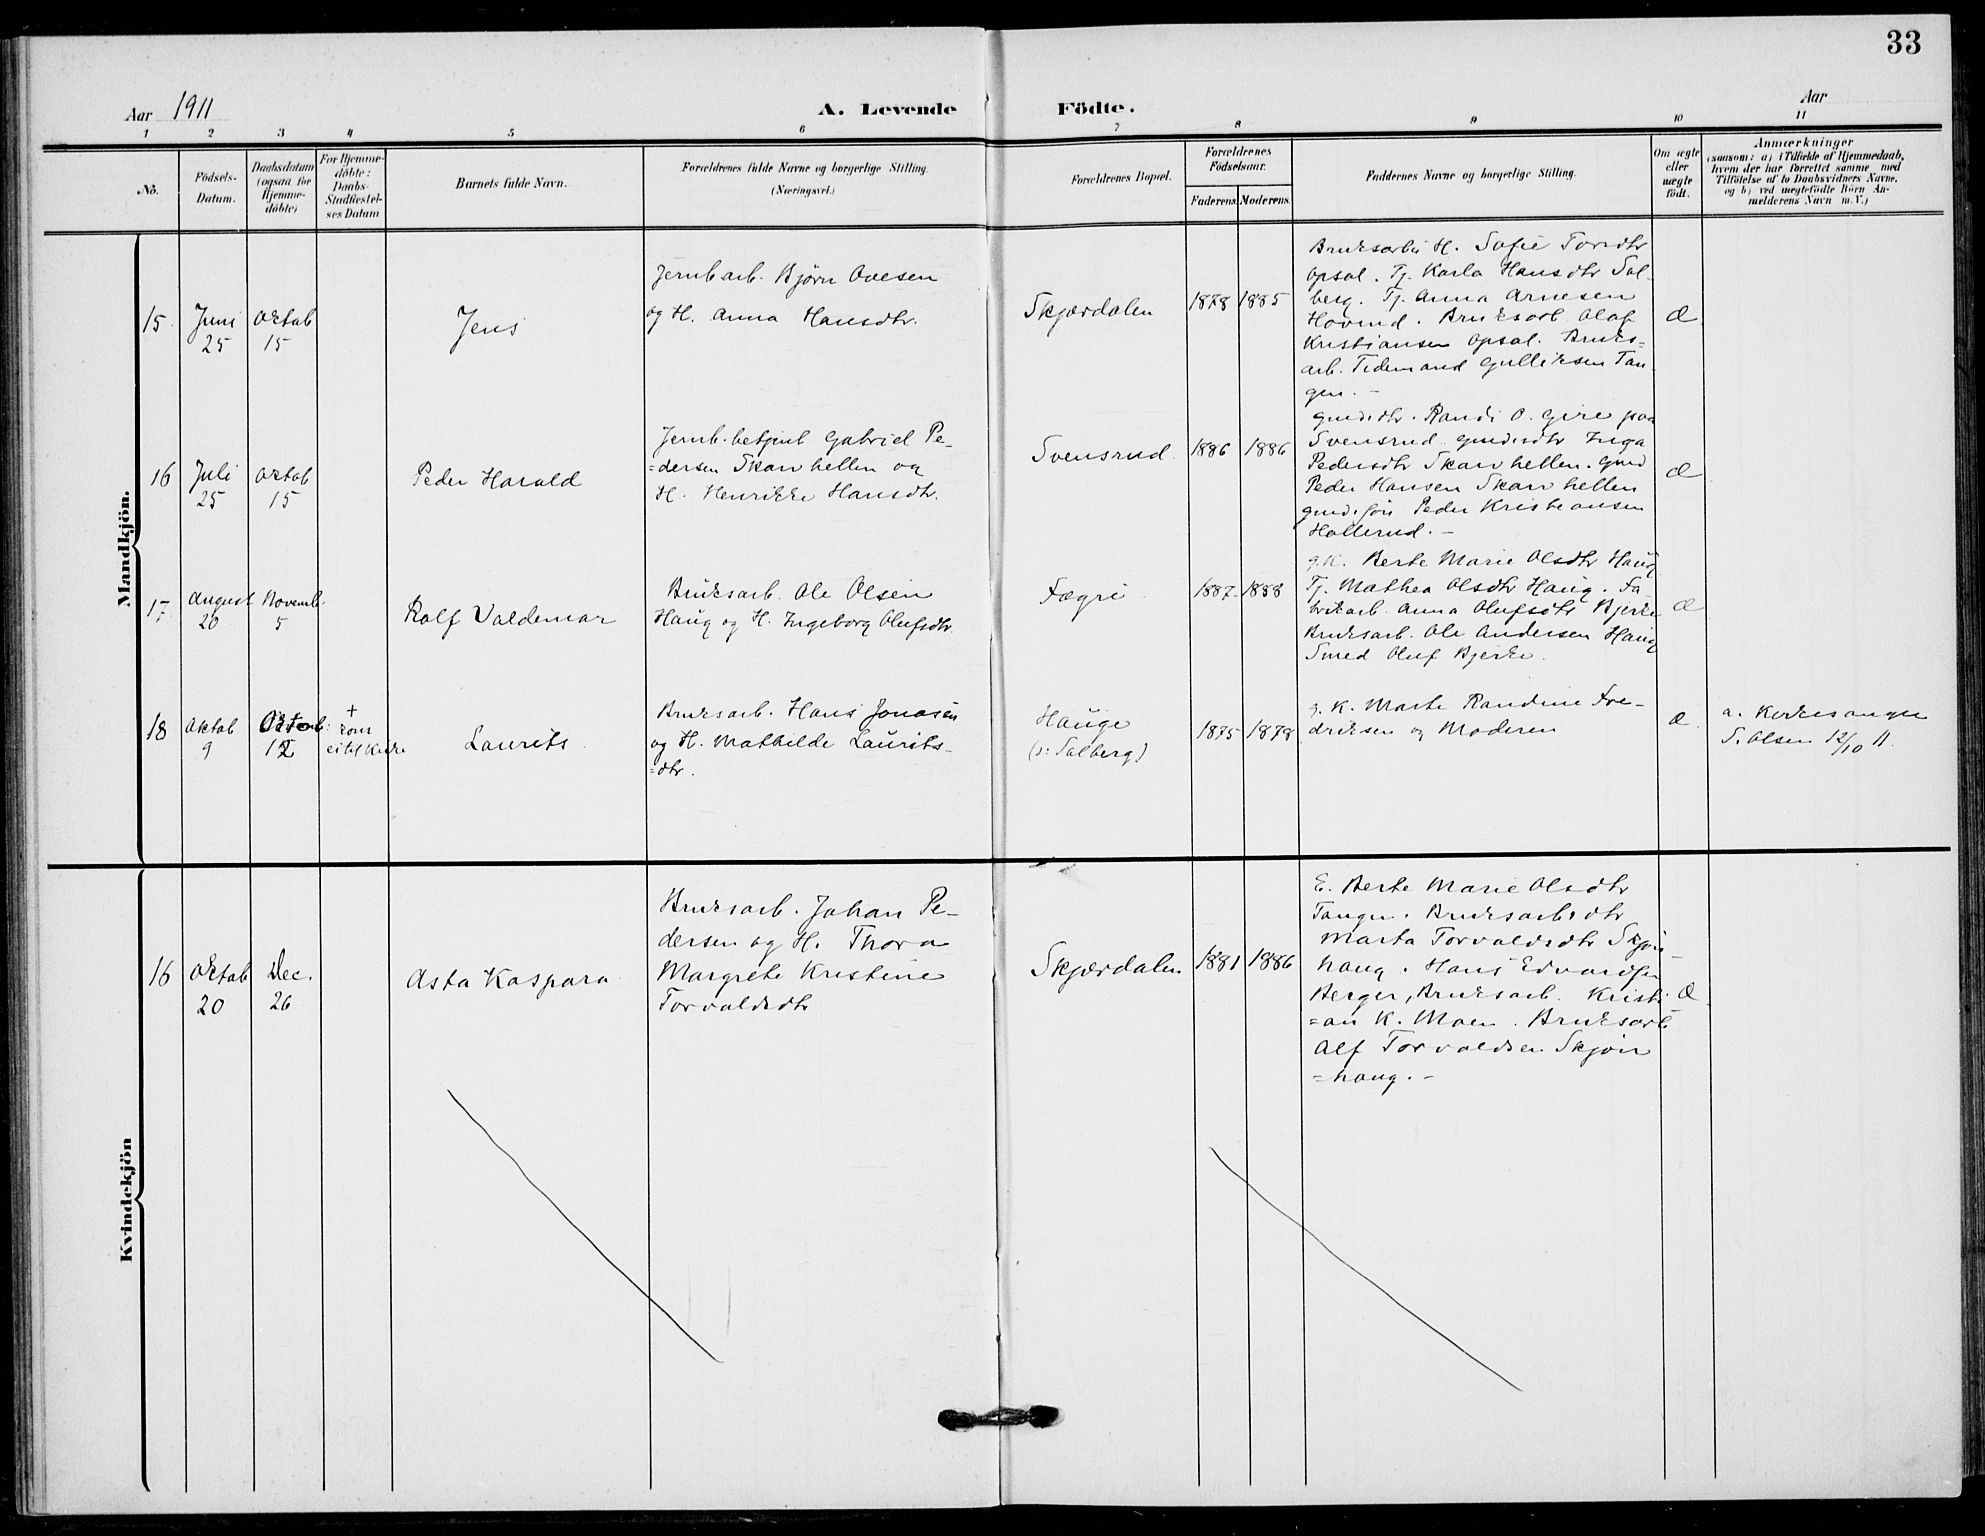 33
Aar 1911
A. Levende Födte.
Aar
1 2 3 4 5 6 7 8 9 10 11
No.
Födsels-
Datum.
Daabsdatum
(ogsaa for
Hjemme-
döbte)
For Hjemme-
döbte:
Daabs-
Stadfæstel-
ses Datum
Barnets fulde Navn.
Forældrenes fulde Navne og borgerlige Stilling.
(Næringsvei.)
Forældrenes Bopæl.
Forældrenes
Födselsaar.
Faderens. Moderens.
Faddernes Navne og borgerlige Stilling.
Om ægte
eller
uægte
födt.
Anmærkninger
(saasom: a) i Tilfælde af Hjemmedaab,
hvem der har forrettet samme med
Tilföielse af to Daabsvidners Navne.
og b) ved uægtefödte Börn An-
melderens Navn m. V.)
Mandkjön.
15.
Juni
25
Oktob
15
Jens
Jernb.arb. Bjørn Ovesen
og H. Anna Hansdtr.
Skjærdalen
1878 1885
Bruksarb H. Sofie Toredtr
Opsal. Tj. Karla Hansdtr Sol-
berg. Tj. Anna Arnesen
Hovind. Bruksarb Olaf
Kristiansen Opsal. Bruks=
arb. Tidemand Gulliksen Tan-
gen. -
Æ
16
Juli
25
Oktob
15
Peder Harald
Jernb.betjent Gabriel Pe-
=dersen Skarrhellen og
H. Henrikke Hansdtr.
Svensrud.
1886 1886
Gmdsdtr. Randi O. Gire paa
Svensrud. Gmdsdtr Inga
Pedersdtr Skarrhellen. Gmd
Peder Hansen Skarrhellen
Gmds.søn Peder Kristiansen
Hollerud. -
Æ
17.
August
20
Novemb.
5
Rolf Valdemar
Bruksarb. Ole Olsen
Haug og H. Ingeborg Olufsdtr.
Fægri
1887 1888
g.k. Berte Marie Olsdtr Haug
Tj. Mathea Olsdtr Haug. Fa-
brikarb. Anna Olufsdtr Bjerke
Bruksarb. Ole Andersen Haug
Smed Oluf Bjerke.
Æ
18
Oktob
9
Oktob:
12
+
kom
ei til Kirke
Laurits
Bruksarb. Hans Jonasen
og H. Mathilde Laurits-
=dtr.
Hauge
(o: Solberg)
1875 1878
g.k. Marte Randine Fre-
driksen og Moderen
Æ.
a. Kirkesanger
S. Olsen 12/10 11.
Kvindekjön
16
Oktob
20
Dec.
26
Asta Kaspara
Bruksarb. Johan Pe-
dersen og H. Thora
Margrete Kristine
Torvaldsdtr
Skjærdalen
1881 1886
E. Berte Marie Olsdtr
Tangen. Bruksarbsdtr
Marta Torvaldsdtr Skjøn-
haug. Hans Edvardsen
Berger, Bruksarb. Kristi-
=an K. Moen. Bruksarb
Alf Torvaldsen Skjøn
=haug. -
Æ.